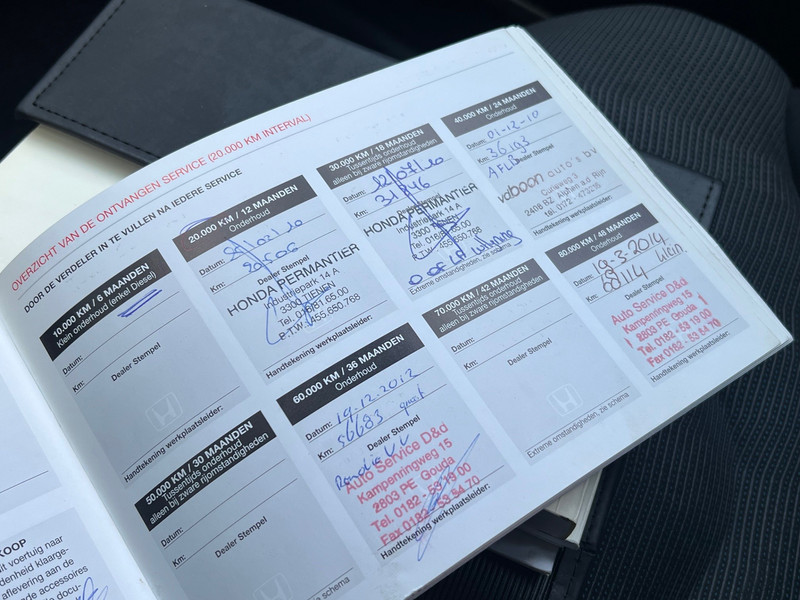 OVERZICHT VAN DE ONTVANGEN SERVICE (20.000 KM INTERVAL)
DOOR DE VERDELER IN TE VULLEN NA IEDERE SERVICE
10.000 KM / 6 MAANDEN
Klein onderhoud (enkel Diesel)
Datum:
Km:
Dealer Stempel
Handtekening werkplaatsleider:
20.000 KM / 12 MAANDEN
Onderhoud
Datum:
Km:
Dealer Stempel
HONDA PERMANTIER
Industriepark 14 A
3300 TIENEN
B.T.W. 455.650.768
Handtekening werkplaatsleider:
30.000 KM / 18 MAANDEN
Tussentijds onderhoud
alleen bij zware rijomstandigheden
Datum:
Km:
HONDA PERMANTIER
Industriepark 14 A
3300 TIENEN
B.T.W. 455.650.768
Extreme omstandigheden, zie schema
40.000 KM / 24 MAANDEN
Onderhoud
Datum: 01-12-10
Km: 36193
Dealer Stempel
vaboon auto's bv
Curieweg 3
2408 BZ Alphen a.d. Rijn
Handtekening werkplaatsleider:
50.000 KM / 30 MAANDEN
Tussentijds onderhoud
alleen bij zware rijomstandigheden
Datum:
Km:
Dealer Stempel
Extreme omstandigheden, zie schema
60.000 KM / 36 MAANDEN
Onderhoud
Datum: 19.12.2012
Km: 56683 groot
Dealer Stempel
Auto Service D&d
Kampenringweg 15
2803 PE Gouda
Tel. 0182 - 53 19 00
Fax 0182 - 53 54 70
Handtekening werkplaatsleider:
70.000 KM / 42 MAANDEN
Tussentijds onderhoud
alleen bij zware rijomstandigheden
Datum:
Km:
Dealer Stempel
Extreme omstandigheden, zie schema
80.000 KM / 48 MAANDEN
Onderhoud
Datum: 19-3-2014
Km: 68114 klein.
Dealer Stempel
Auto Service D&d
Kampenringweg 15
2803 PE Gouda
Tel. 0182 - 53 19 00
Fax 0182 - 53 54 70
Handtekening werkplaatsleider:
KOOP
it voertuig naar
denheid klaarge-
aflevering aan de
nde accessoires
de docu-